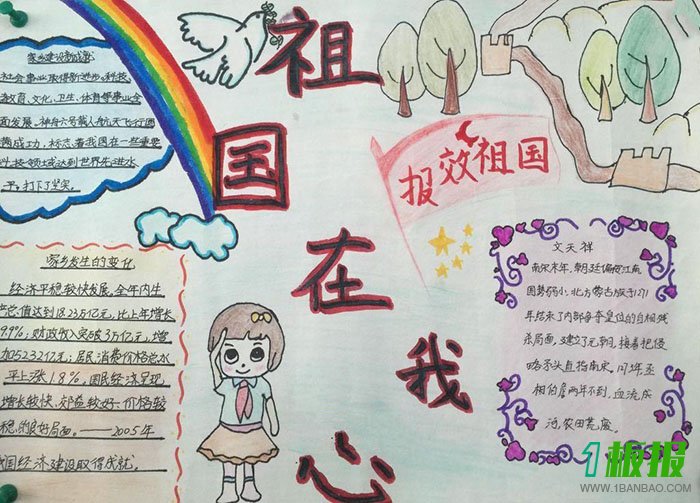 祖
国
在
我
心
家乡建设新成就
社会事业取得新进步,科技、
教育、文化、卫生、体育等事业全
面发展。神舟六号载人航天飞行圆
满成功,标志着我国在一些重要
科技领域达到世界先进水
平,打下了坚实
报效祖国
家乡发生的变化
经济平稳较快发展。全年内生
产总值达到18.23万亿元,比上年增长
9.9%;财政收入突破3万亿元,增
加5232亿元;居民消费价格总水
平上涨1.8%。国民经济呈现
增长较快、效益较好、价格较
稳的良好局面。——2005年
我国经济建设取得成就。
文天祥
南宋末年,朝廷偏安江南,
国势弱小,北方蒙古族于1271
年结束了内部争夺皇位的自相残
杀局面,建立了元朝,接着把侵
略矛头直指南宋。同年至
相伯颜两年不到,血流成
河,农田荒废。
1板报
WWW.1BANBAO.COM